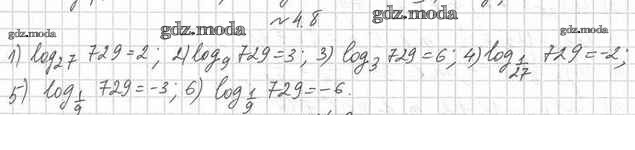 № 4.8
gdz.moda
gdz.moda
gdz.moda
gdz.moda
1) log₂₇ 729=2; 2) log₉ 729=3; 3) log₃ 729=6; 4) log_{1/27} 729=-2;
5) log_{1/9} 729=-3; 6) log_{1/9} 729=-6.